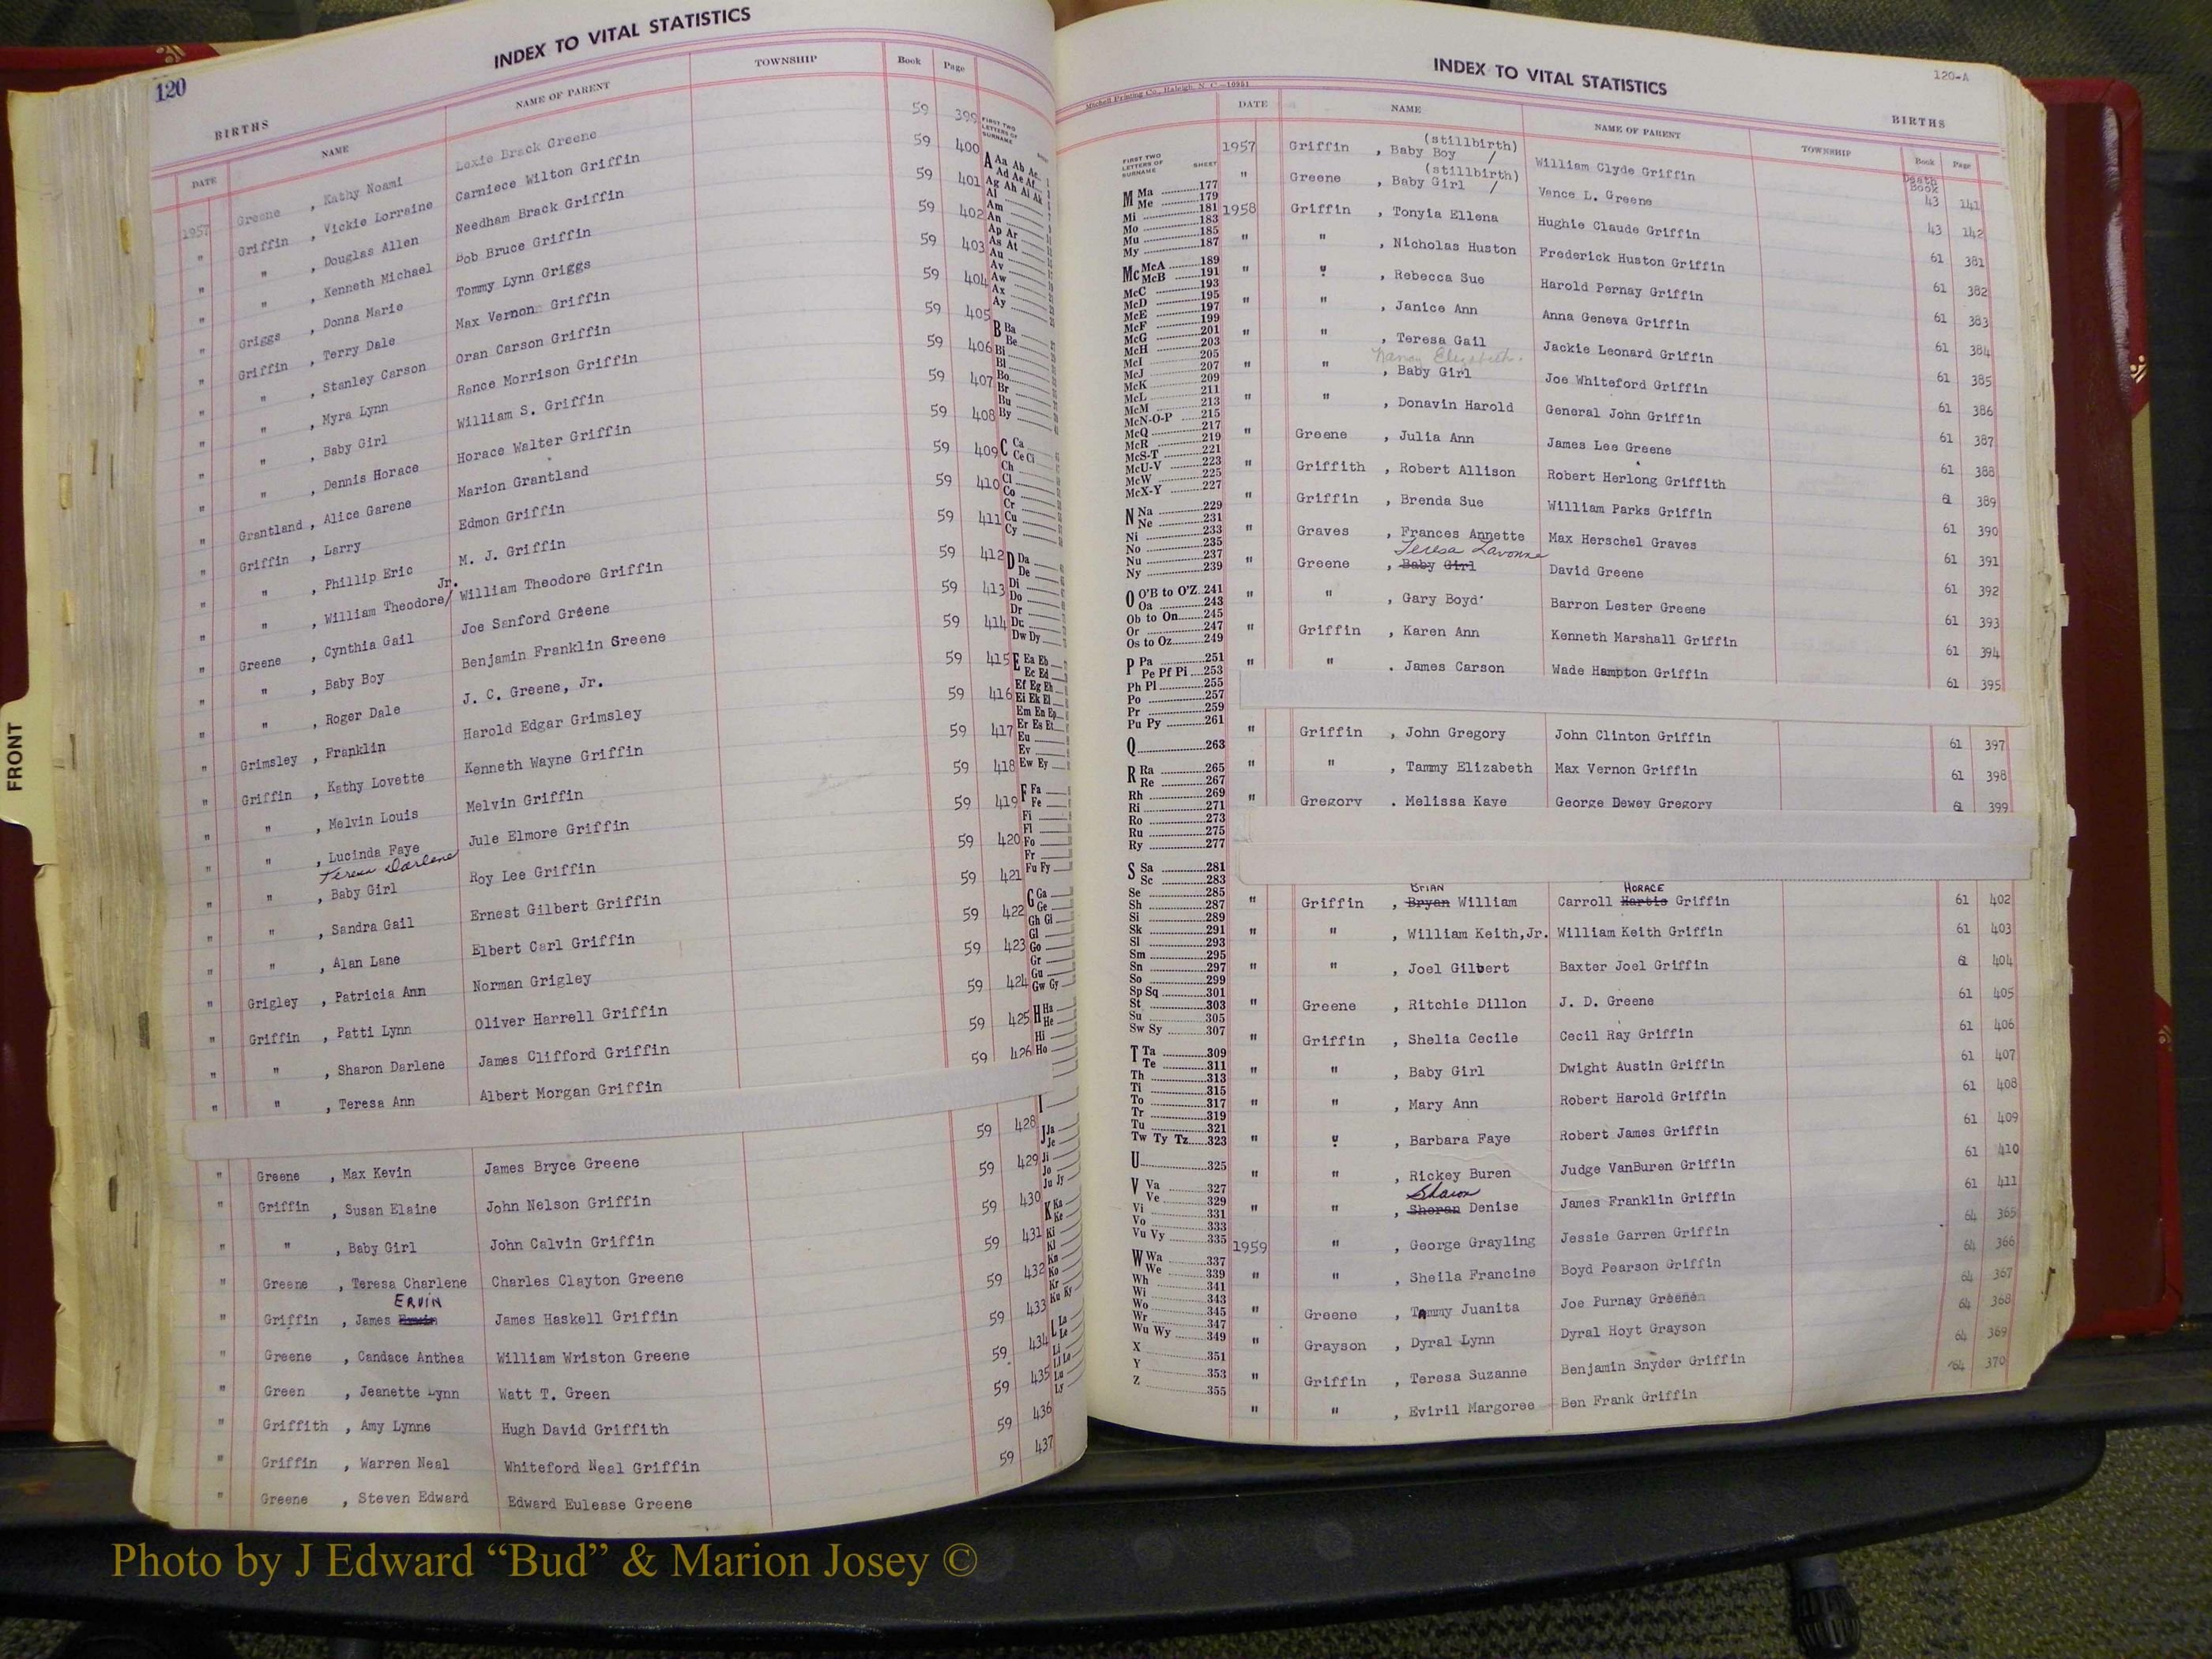 120
INDEX TO VITAL STATISTICS
BIRTHS
DATE NAME NAME OF PARENT TOWNSHIP Book Page
1957 Greene , Kathy Noami Loxie Brack Greene 59 399
" Griffin , Vickie Lorraine Carniece Wilton Griffin 59 400
" " , Douglas Allen Needham Brack Griffin 59 401
" " , Kenneth Michael Bob Bruce Griffin 59 402
" Griggs , Donna Marie Tommy Lynn Griggs 59 403
" Griffin , Terry Dale Max Vernon Griffin 59 404
" " , Stanley Carson Oran Carson Griffin 59 405
" " , Myra Lynn Rance Morrison Griffin 59 406
" " , Baby Girl William S. Griffin 59 407
" " , Dennis Horace Horace Walter Griffin 59 408
" Grantland , Alice Garene Marion Grantland 59 409
" Griffin , Larry Edmon Griffin 59 410
" " , Phillip Eric M. J. Griffin 59 411
" " , William Theodore/ Jr. William Theodore Griffin 59 412
" Greene , Cynthia Gail Joe Sanford Greene 59 413
" " , Baby Boy Benjamin Franklin Greene 59 414
" " , Roger Dale J. C. Greene, Jr. 59 415
" Grimsley , Franklin Harold Edgar Grimsley 59 416
" Griffin , Kathy Lovette Kenneth Wayne Griffin 59 417
" " , Melvin Louis Melvin Griffin 59 418
" " , Lucinda Faye Jule Elmore Griffin 59 419
Teresa Darlene
" " , Baby Girl Roy Lee Griffin 59 420
" " , Sandra Gail Ernest Gilbert Griffin 59 421
" " , Alan Lane Elbert Carl Griffin 59 422
" Grigley , Patricia Ann Norman Grigley 59 423
" Griffin , Patti Lynn Oliver Harrell Griffin 59 424
" " , Sharon Darlene James Clifford Griffin 59 425
" " , Teresa Ann Albert Morgan Griffin 59 426
" Greene , Max Kevin James Bryce Greene 59 428
" Griffin , Susan Elaine John Nelson Griffin 59 429
" " , Baby Girl John Calvin Griffin 59 430
" Greene , Teresa Charlene Charles Clayton Greene 59 431
ERVIN
" Griffin , James James Haskell Griffin 59 432
" Greene , Candace Anthea William Wriston Greene 59 433
" Green , Jeanette Lynn Watt T. Green 59 434
" Griffith , Amy Lynne Hugh David Griffith 59 435
" Griffin , Warren Neal Whiteford Neal Griffin 59 436
" Greene , Steven Edward Edward Eulease Greene 59 437
FIRST TWO LETTERS OF SURNAME
A Aa Ab Ac
Ad Ae Af
Ag Ah Ai Ak
Al
Am
An
Ap Ar
As At
Au
Av
Aw
Ax
Ay
B Ba
Be
Bi
Bl
Bo
Br
Bu
By
C Ca
Ce Ci
Ch
Cl
Co
Cr
Cu
Cy
D Da
De
Di
Do
Dr
Du
Dw Dy
E Ea Eb
Ec Ed
Ef Eg Eh
Ei Ek El
Em En Ep
Er Es Et
Eu
Ev
Ew Ey
F Fa
Fe
Fi
Fl
Fo
Fr
Fu Fy
G Ga
Ge
Gh Gi
Gl
Go
Gr
Gu
Gw Gy
H Ha
He
Hi
Ho
I
J Ja
Je
Ji
Jo
Ju Jy
K Ka
Ke
Ki
Kl
Kn
Ko
Kr
Ku Ky
L La
Le
Li
Ll Lo
Lu
Ly
FRONT
120-A
INDEX TO VITAL STATISTICS
Mitchell Printing Co., Raleigh, N. C.—10951
BIRTHS
DATE NAME NAME OF PARENT TOWNSHIP Book Page
FIRST TWO LETTERS OF SURNAME SHEET
M Ma 177
Me 179
Mi 181
Mo 183
Mu 185
My 187
Mc McA 189
McB 191
McC 193
McD 195
McE 197
McF 199
McG 201
McH 203
McI 205
McJ 207
McK 209
McL 211
McM 213
McN-O-P 215
McQ 217
McR 219
McS-T 221
McU-V 223
McW 225
McX-Y 227
N Na 229
Ne 231
Ni 233
No 235
Nu 237
Ny 239
O O'B to O'Z 241
Oa 243
Ob to On 245
Or 247
Os to Oz 249
P Pa 251
Pe Pf Pi 253
Ph Pl 255
Po 257
Pr 259
Pu Py 261
Q 263
R Ra 265
Re 267
Rh 269
Ri 271
Ro 273
Ru 275
Ry 277
S Sa 281
Sc 283
Se 285
Sh 287
Si 289
Sk 291
Sl 293
Sm 295
Sn 297
So 299
Sp Sq 301
St 303
Su 305
Sw Sy 307
T Ta 309
Te 311
Th 313
Ti 315
To 317
Tr 319
Tu 321
Tw Ty Tz 323
U 325
V Va 327
Ve 329
Vi 331
Vo 333
Vu Vy 335
W Wa 337
We 339
Wh 341
Wi 343
Wo 345
Wr 347
Wu Wy 349
X 351
Y 353
Z 355
Death Book
(stillbirth)
1957 Griffin , Baby Boy / William Clyde Griffin 43 141
(stillbirth)
" Greene , Baby Girl / Vance L. Greene 43 142
1958 Griffin , Tonyia Ellena Hughie Claude Griffin 61 381
" " , Nicholas Huston Frederick Huston Griffin 61 382
" " , Rebecca Sue Harold Pernay Griffin 61 383
" " , Janice Ann Anna Geneva Griffin 61 384
" " , Teresa Gail Jackie Leonard Griffin 61 385
Nancy Elizabeth.
" " , Baby Girl Joe Whiteford Griffin 61 386
" " , Donavin Harold General John Griffin 61 387
" Greene , Julia Ann James Lee Greene 61 388
" Griffith , Robert Allison Robert Herlong Griffith 61 389
" Griffin , Brenda Sue William Parks Griffin 61 390
" Graves , Frances Annette Max Herschel Graves 61 391
Teresa Lavonne
" Greene , Baby Girl David Greene 61 392
" " , Gary Boyd Barron Lester Greene 61 393
" Griffin , Karen Ann Kenneth Marshall Griffin 61 394
" " , James Carson Wade Hampton Griffin 61 395
" Griffin , John Gregory John Clinton Griffin 61 397
" " , Tammy Elizabeth Max Vernon Griffin 61 398
" Gregory , Melissa Kaye George Dewey Gregory 61 399
BRIAN HORACE
" Griffin , Bryan William Carroll Hartis Griffin 61 402
" " , William Keith,Jr. William Keith Griffin 61 403
" " , Joel Gilbert Baxter Joel Griffin 61 404
" Greene , Ritchie Dillon J. D. Greene 61 405
" Griffin , Shelia Cecile Cecil Ray Griffin 61 406
" " , Baby Girl Dwight Austin Griffin 61 407
" " , Mary Ann Robert Harold Griffin 61 408
" " , Barbara Faye Robert James Griffin 61 409
" " , Rickey Buren Judge VanBuren Griffin 61 410
Sharon
" " , Shoran Denise James Franklin Griffin 61 411
1959 " , George Grayling Jessie Garren Griffin 64 365
" " , Sheila Francine Boyd Pearson Griffin 64 366
" Greene , Tammy Juanita Joe Purnay Greene 64 367
" Grayson , Dyral Lynn Dyral Hoyt Grayson 64 368
" Griffin , Teresa Suzanne Benjamin Snyder Griffin 64 369
" " , Eviril Margoree Ben Frank Griffin 64 370
Photo by J Edward “Bud” & Marion Josey ©